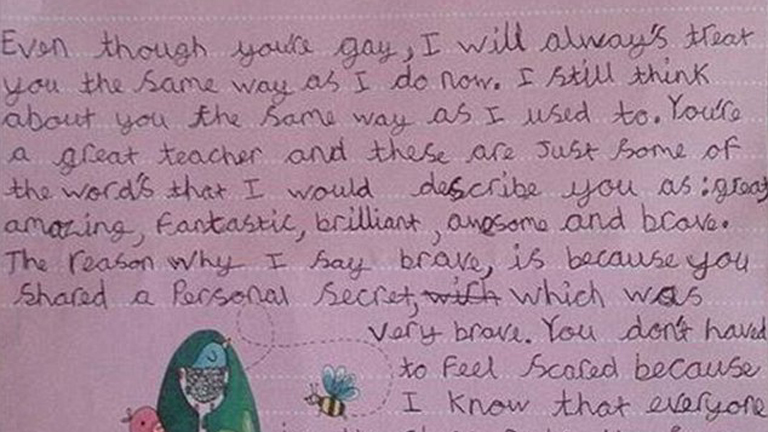 Even though you're gay, I will alway's treat
you the same way as I do now. I still think
about you the same way as I used to. You're
a great teacher and these are Just some of
the word's that I would describe you as: great
amazing, fantastic, brilliant, awesome and brave.
The reason why I say brave, is because you
shared a Personal secret, with which was
very brave. You don't haved
to feel scared because
I know that everyone